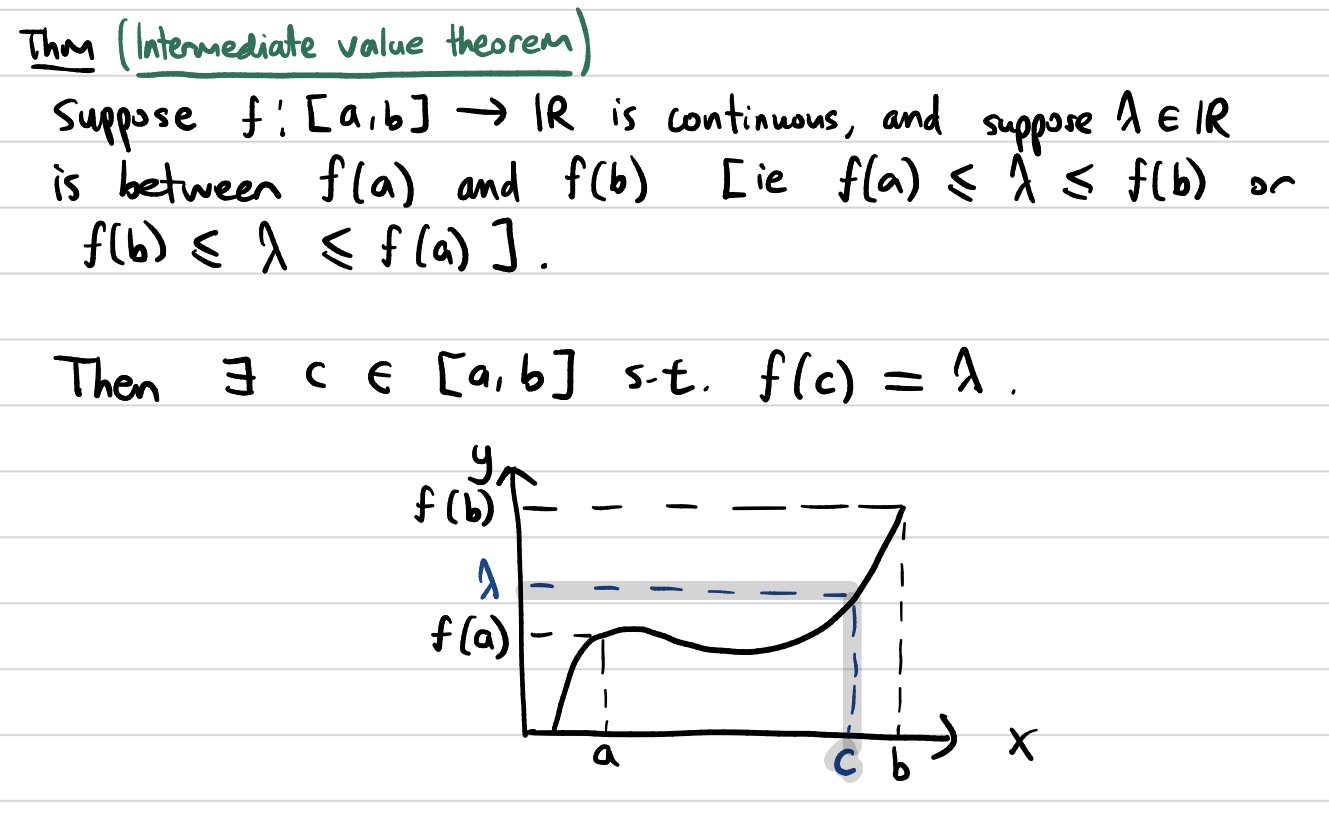 Thm (Intermediate value theorem)
Suppose f: [a,b] → ℝ is continuous, and suppose λ ∈ ℝ
is between f(a) and f(b) [ie f(a) ⩽ λ ⩽ f(b) or
f(b) ⩽ λ ⩽ f(a) ].
Then ∃ c ∈ [a,b] s.t. f(c) = λ.
y
f(b)
λ
f(a)
a
c
b
x